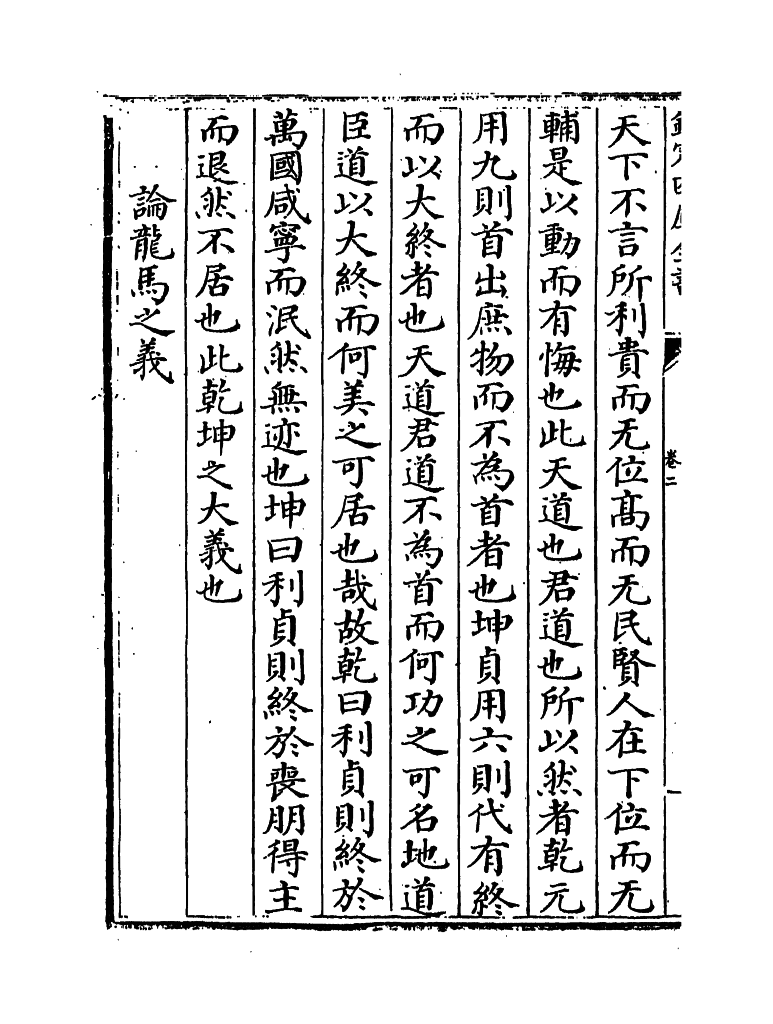 欽定四庫全書
卷二
天下不言所利貴而无位髙而无民賢人在下位而无
輔是以動而有悔也此天道也君道也所以然者乾元
用九則首出庶物而不為首者也坤貞用六則代有終
而以大終者也天道君道不為首而何功之可名地道
臣道以大終而何美之可居也哉故乾曰利貞則終於
萬國咸寧而泯然無迹也坤曰利貞則終於喪朋得主
而退然不居也此乾坤之大義也
論龍馬之義